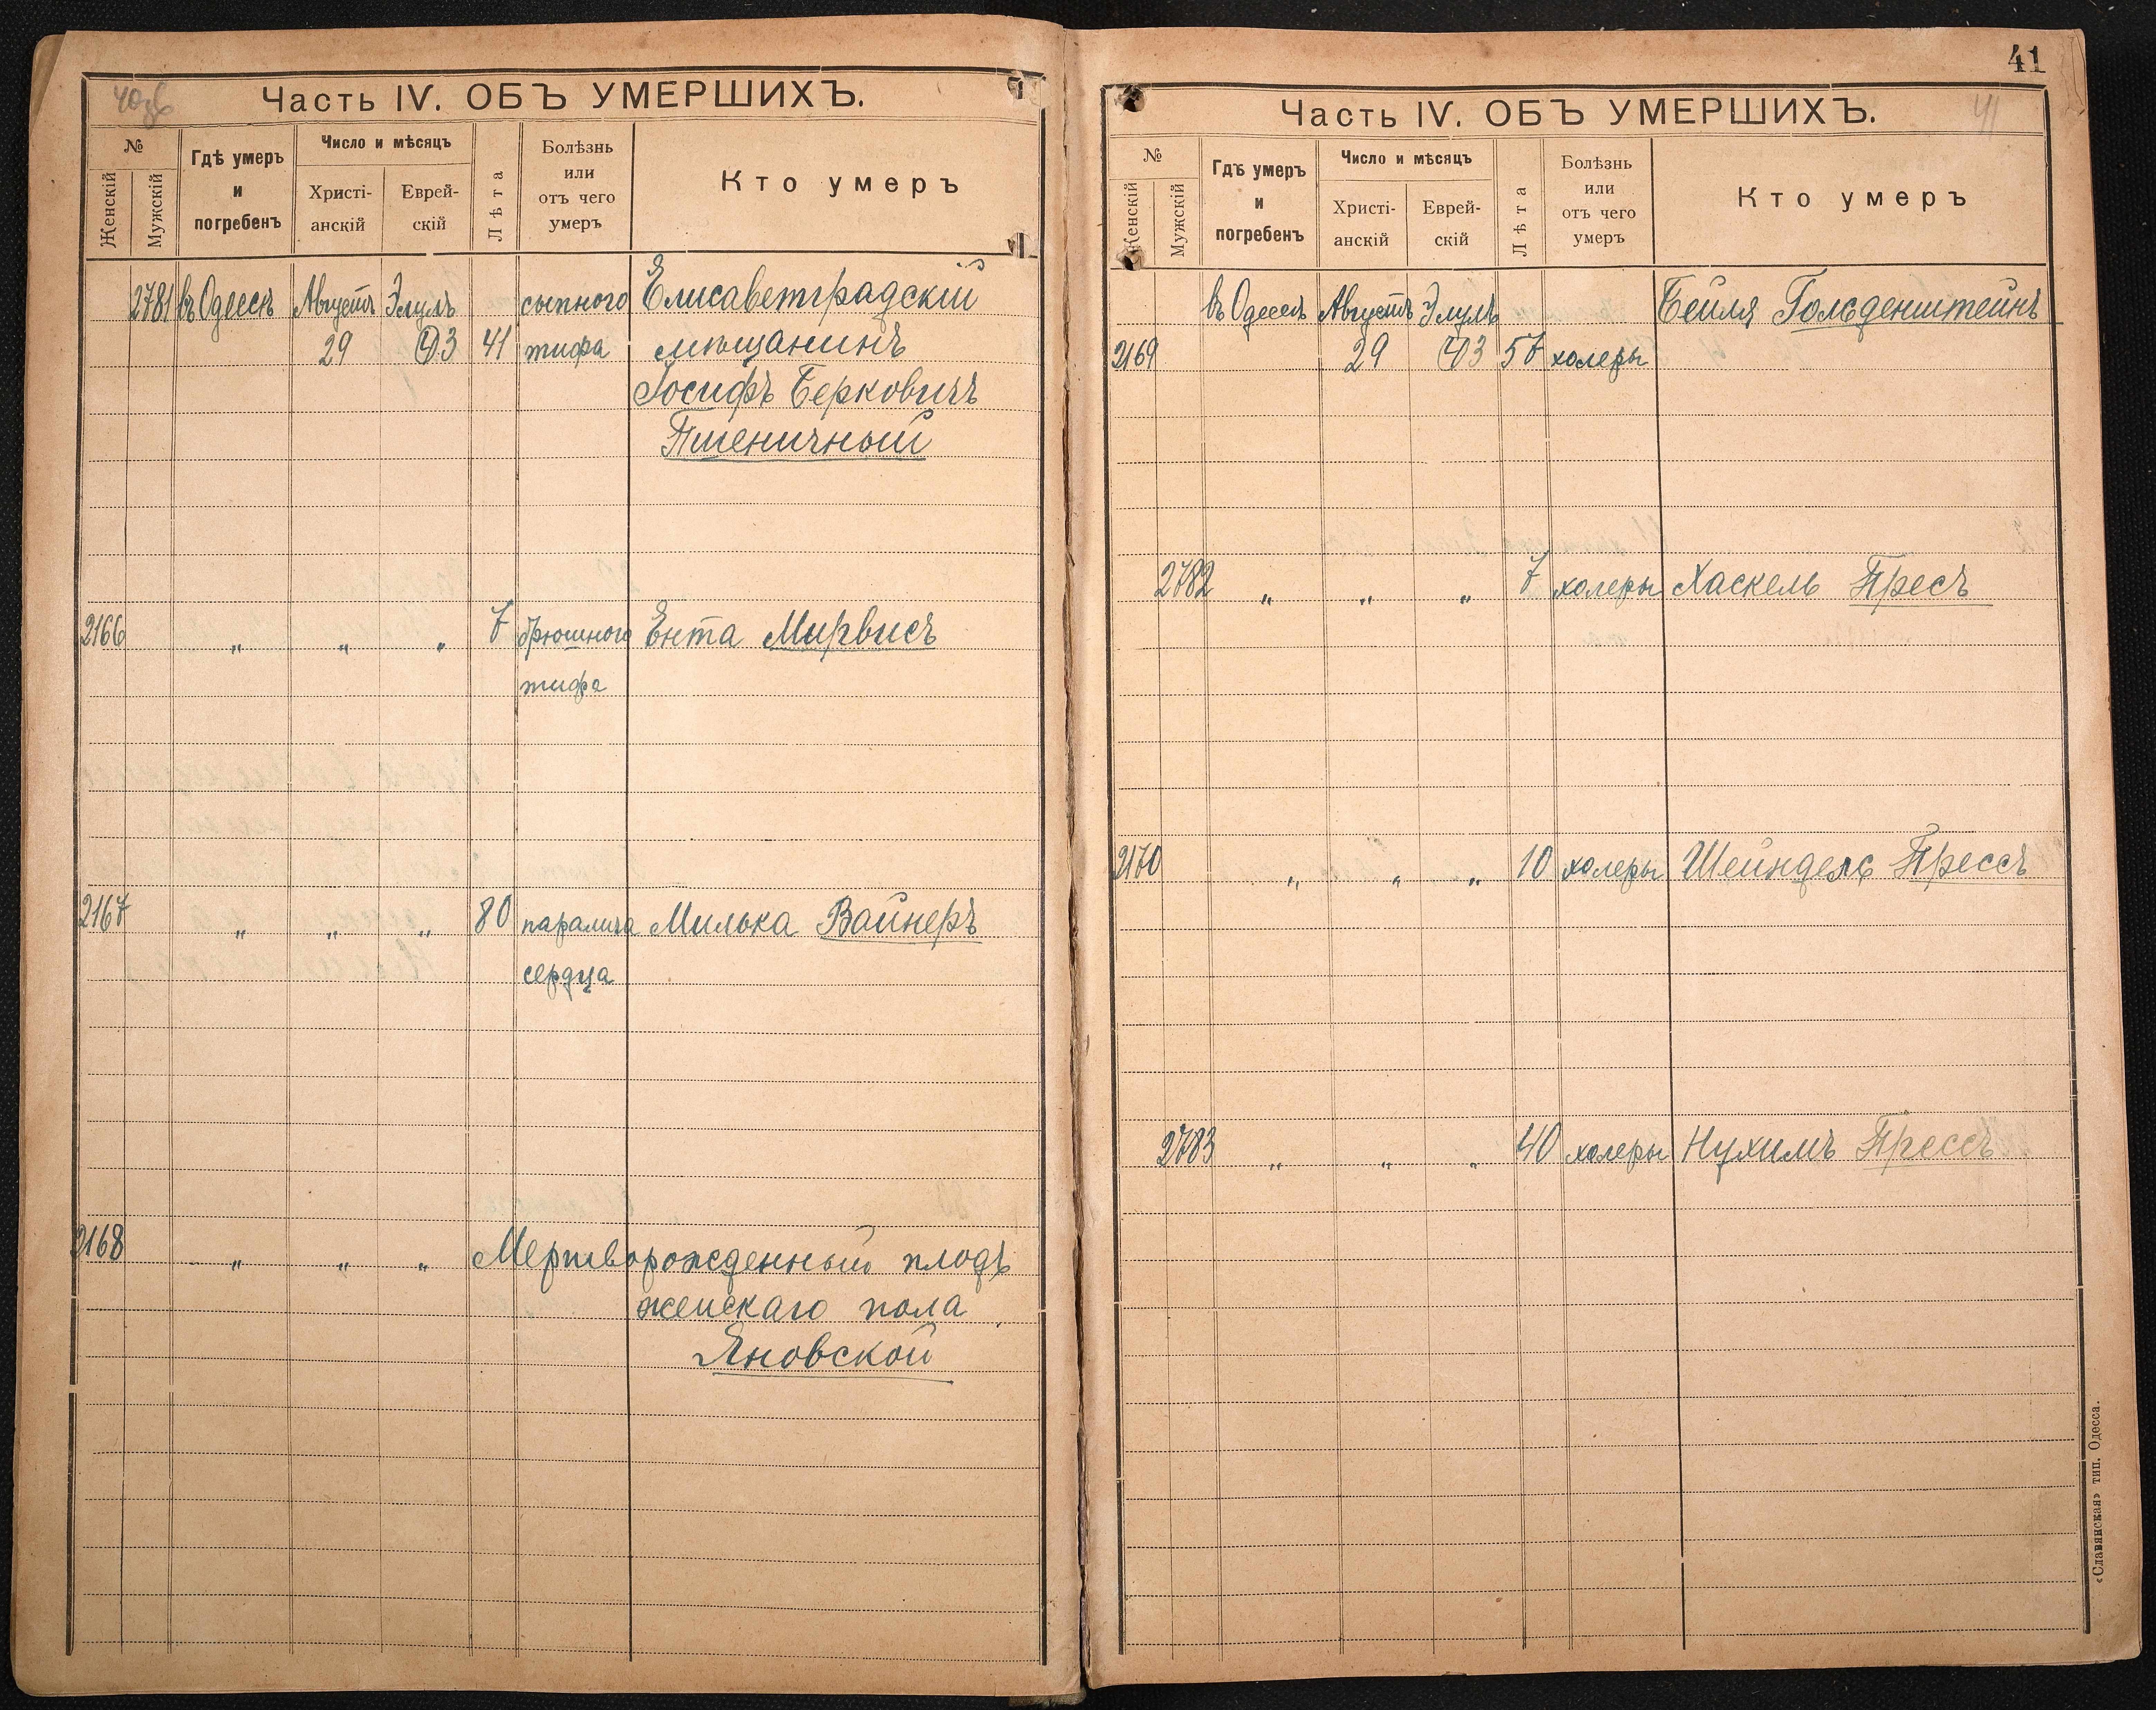 40об
Часть IV. ОБЪ УМЕРШИХЪ.
№
Женскій
Мужскій
Гдѣ умеръ
и
погребенъ
Число и мѣсяцъ
Христі-
анскій
Еврей-
скій
Лѣта
Болѣзнь
или
отъ чего
умеръ
Кто умеръ
2781 въ Одессѣ Августъ Элулъ сыпного Елисаветградскій
29 3 41 тифа мѣщанинъ
Іосифъ Берковичъ
Пшеничный
2166 " " " 7 брюшного Ента Мирвисъ
тифа
2167 " " " 80 паралича Милька Вайнеръ
сердца
2168 " " " Мертворожденный плодъ
женскаго пола
Яновской
41
Часть IV. ОБЪ УМЕРШИХЪ.
41
№
Женскій
Мужскій
Гдѣ умеръ
и
погребенъ
Число и мѣсяцъ
Христі-
анскій
Еврей-
скій
Лѣта
Болѣзнь
или
отъ чего
умеръ
Кто умеръ
въ Одессѣ Августъ Элулъ Бейля Гольденштейнъ
2169 29 3 57 холеры
2782 " " " 7 холеры Хаскель Пресъ
2170 " " " 10 холеры Шейндель Прессъ
2783 " " " 40 холеры Нухимъ Прессъ
«Славянская» тип. Одесса.